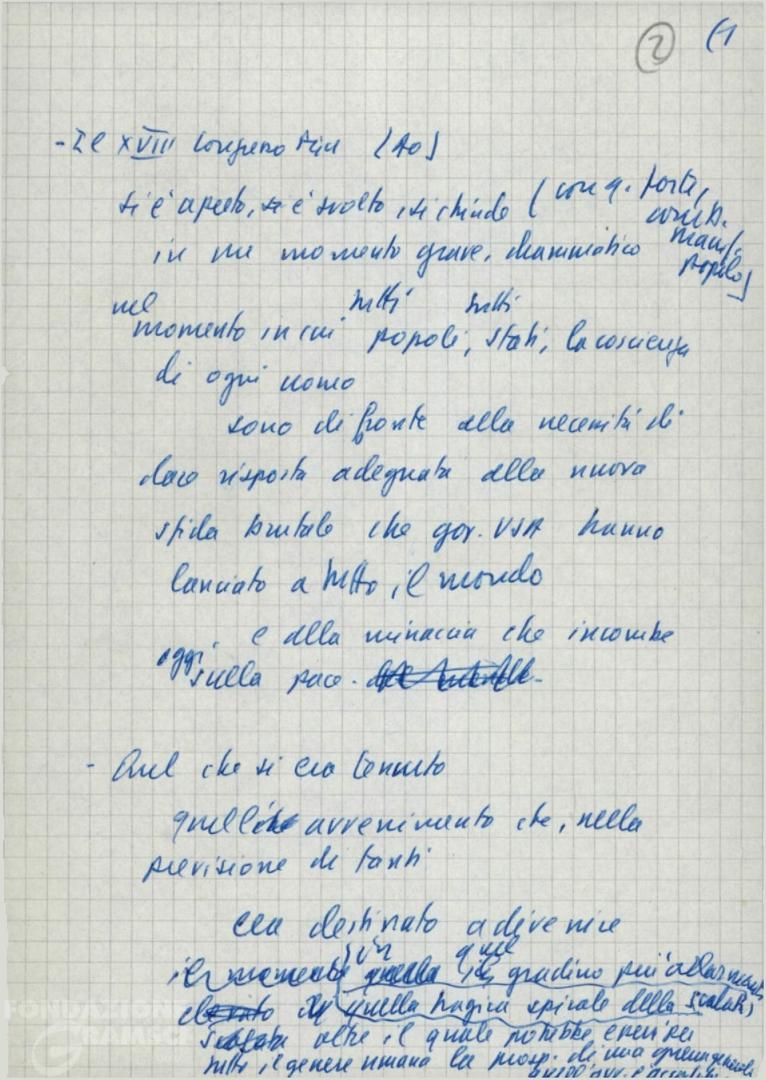 2 (1
- Il XVIII Congresso
si è aperto, si è svolto, si chiude (con q. forte,
comb.
manif.
popolo)
in un momento grave, drammatico
nel tutti tutti
momento in cui popoli, stati, la coscienza
di ogni uomo
sono di fronte alla necessità di
dare risposta adeguata alla nuova
sfida brutale che gov. USA hanno
lanciato a tutto il mondo
e alla minaccia che incombe
oggi sulla pace.
- Quel che si era temuto
quell' avvenimento che, nella
previsione di tanti
era destinato a divenire
il momento quella il gradino più allarmante
di quella tragica spirale della scalata,
oltre il quale potrebbe esservi
tutto il genere umano la prosp. di una guerra generale
FONDAZIONE
GRAMSCI